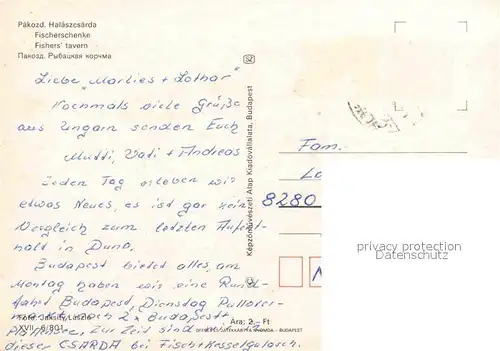 Pákozd. Halászcsárda
Fischerschenke
Fishers' tavern
Пакозд. Рыбацкая корчма
Liebe "Marlies + Lothar"
Nochmals viele Grüße
aus Ungarn senden Euch
Mutti, Vati + Andreas
Jeden Tag erleben wir
etwas Neues, es ist gar kein
Vergleich zum letzten Aufent-
halt in Duna.
Budapest bietet alles, am
Montag haben wir eine Rund-
fahrt Budapest, Dienstag
2x Budapest +
Zur Zeit sind wir in
dieser CSARDA bei Fisch + Kesselgulasch.
Foto: Jaksity László
XVII-6/801
Ára: 2,- Ft
BUDAPEST
Képzőművészeti Alap Kiadóvállalata, Budapest
Fam.
8280
privacy protection
Datenschutz